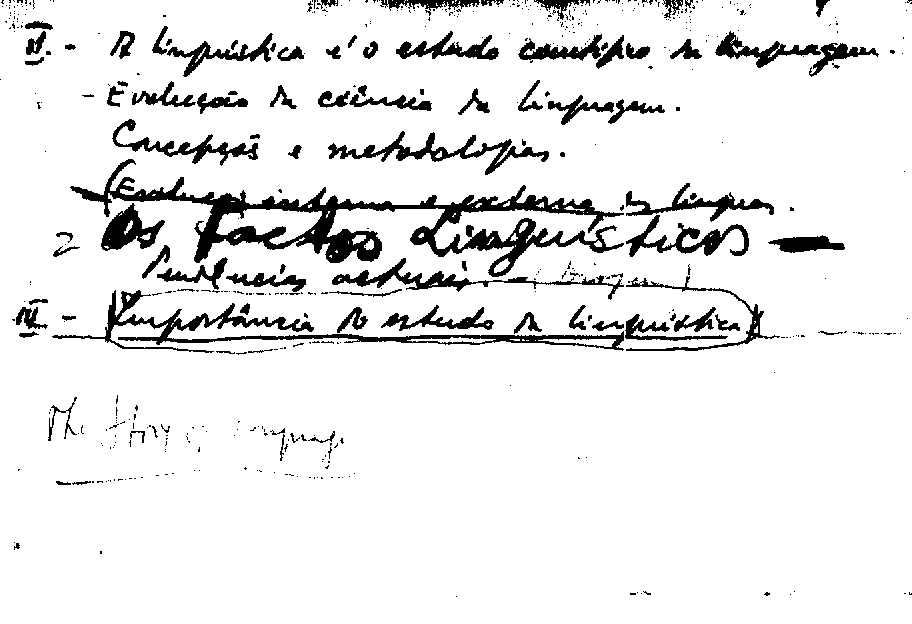 II. - A linguística é o estudo científico da linguagem.
- Evolução da ciência da linguagem.
Concepções e metodologias.
(Evolução interna e externa das línguas.
2 Os Factos Linguísticos —
Tendências actuais. -
III - Importância do estudo da linguística
The Story of Language